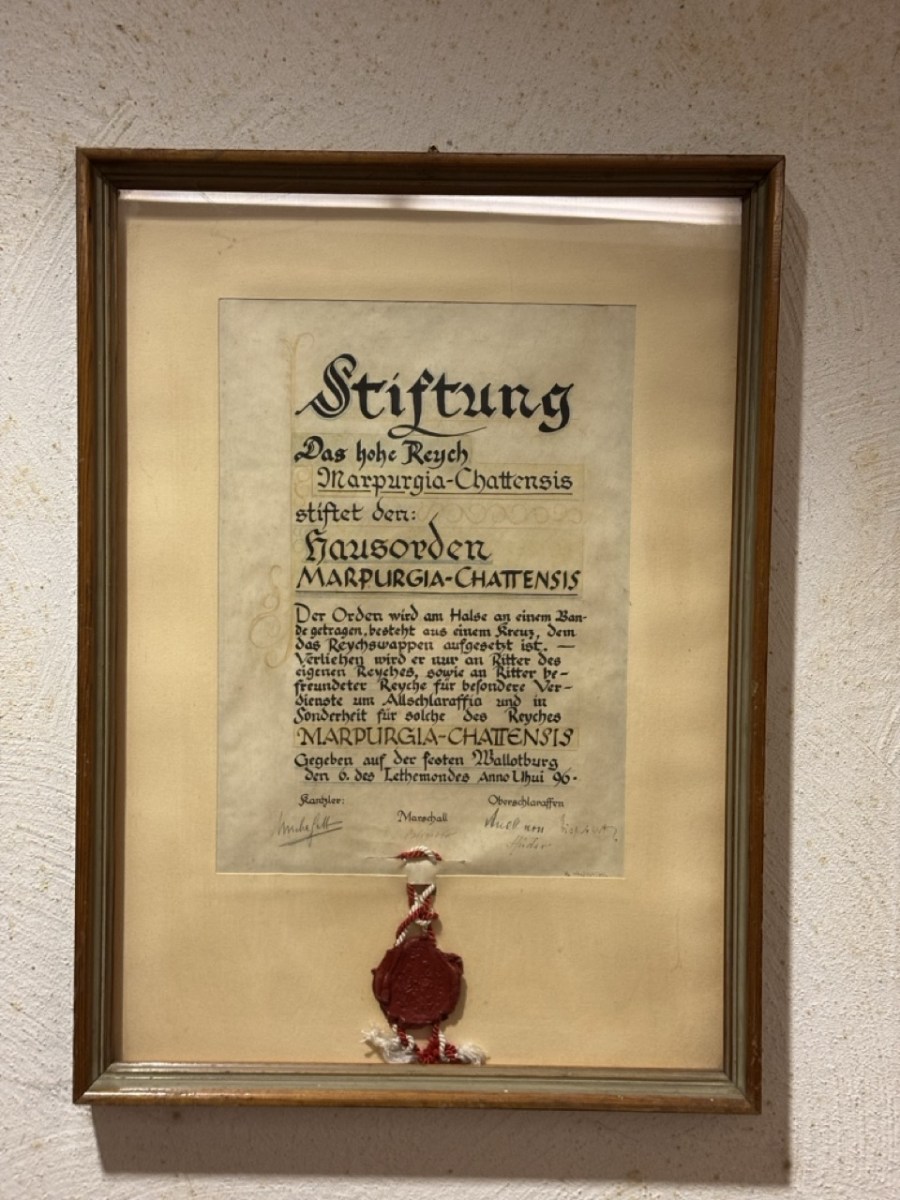 Stiftung
Das hohe Reych
Marpurgia-Chattensis
stiftet den:
Hausorden
MARPURGIA-CHATTENSIS
Der Orden wird am Halse an einem Ban-
de getragen, besteht aus einem Kreuz, dem
das Reychswappen aufgesetzt ist. —
Verliehen wird er nur an Ritter des
eigenen Reyches, sowie an Ritter be-
freundeter Reyche für besondere Ver-
dienste um Allschlaraffia und in
Sonderheit für solche des Reyches
MARPURGIA-CHATTENSIS
Gegeben auf der festen Wallotburg
den 6. des Lethemondes Anno Uhui 96-
Kantzler: Oberschlaraffen
Marschall
von